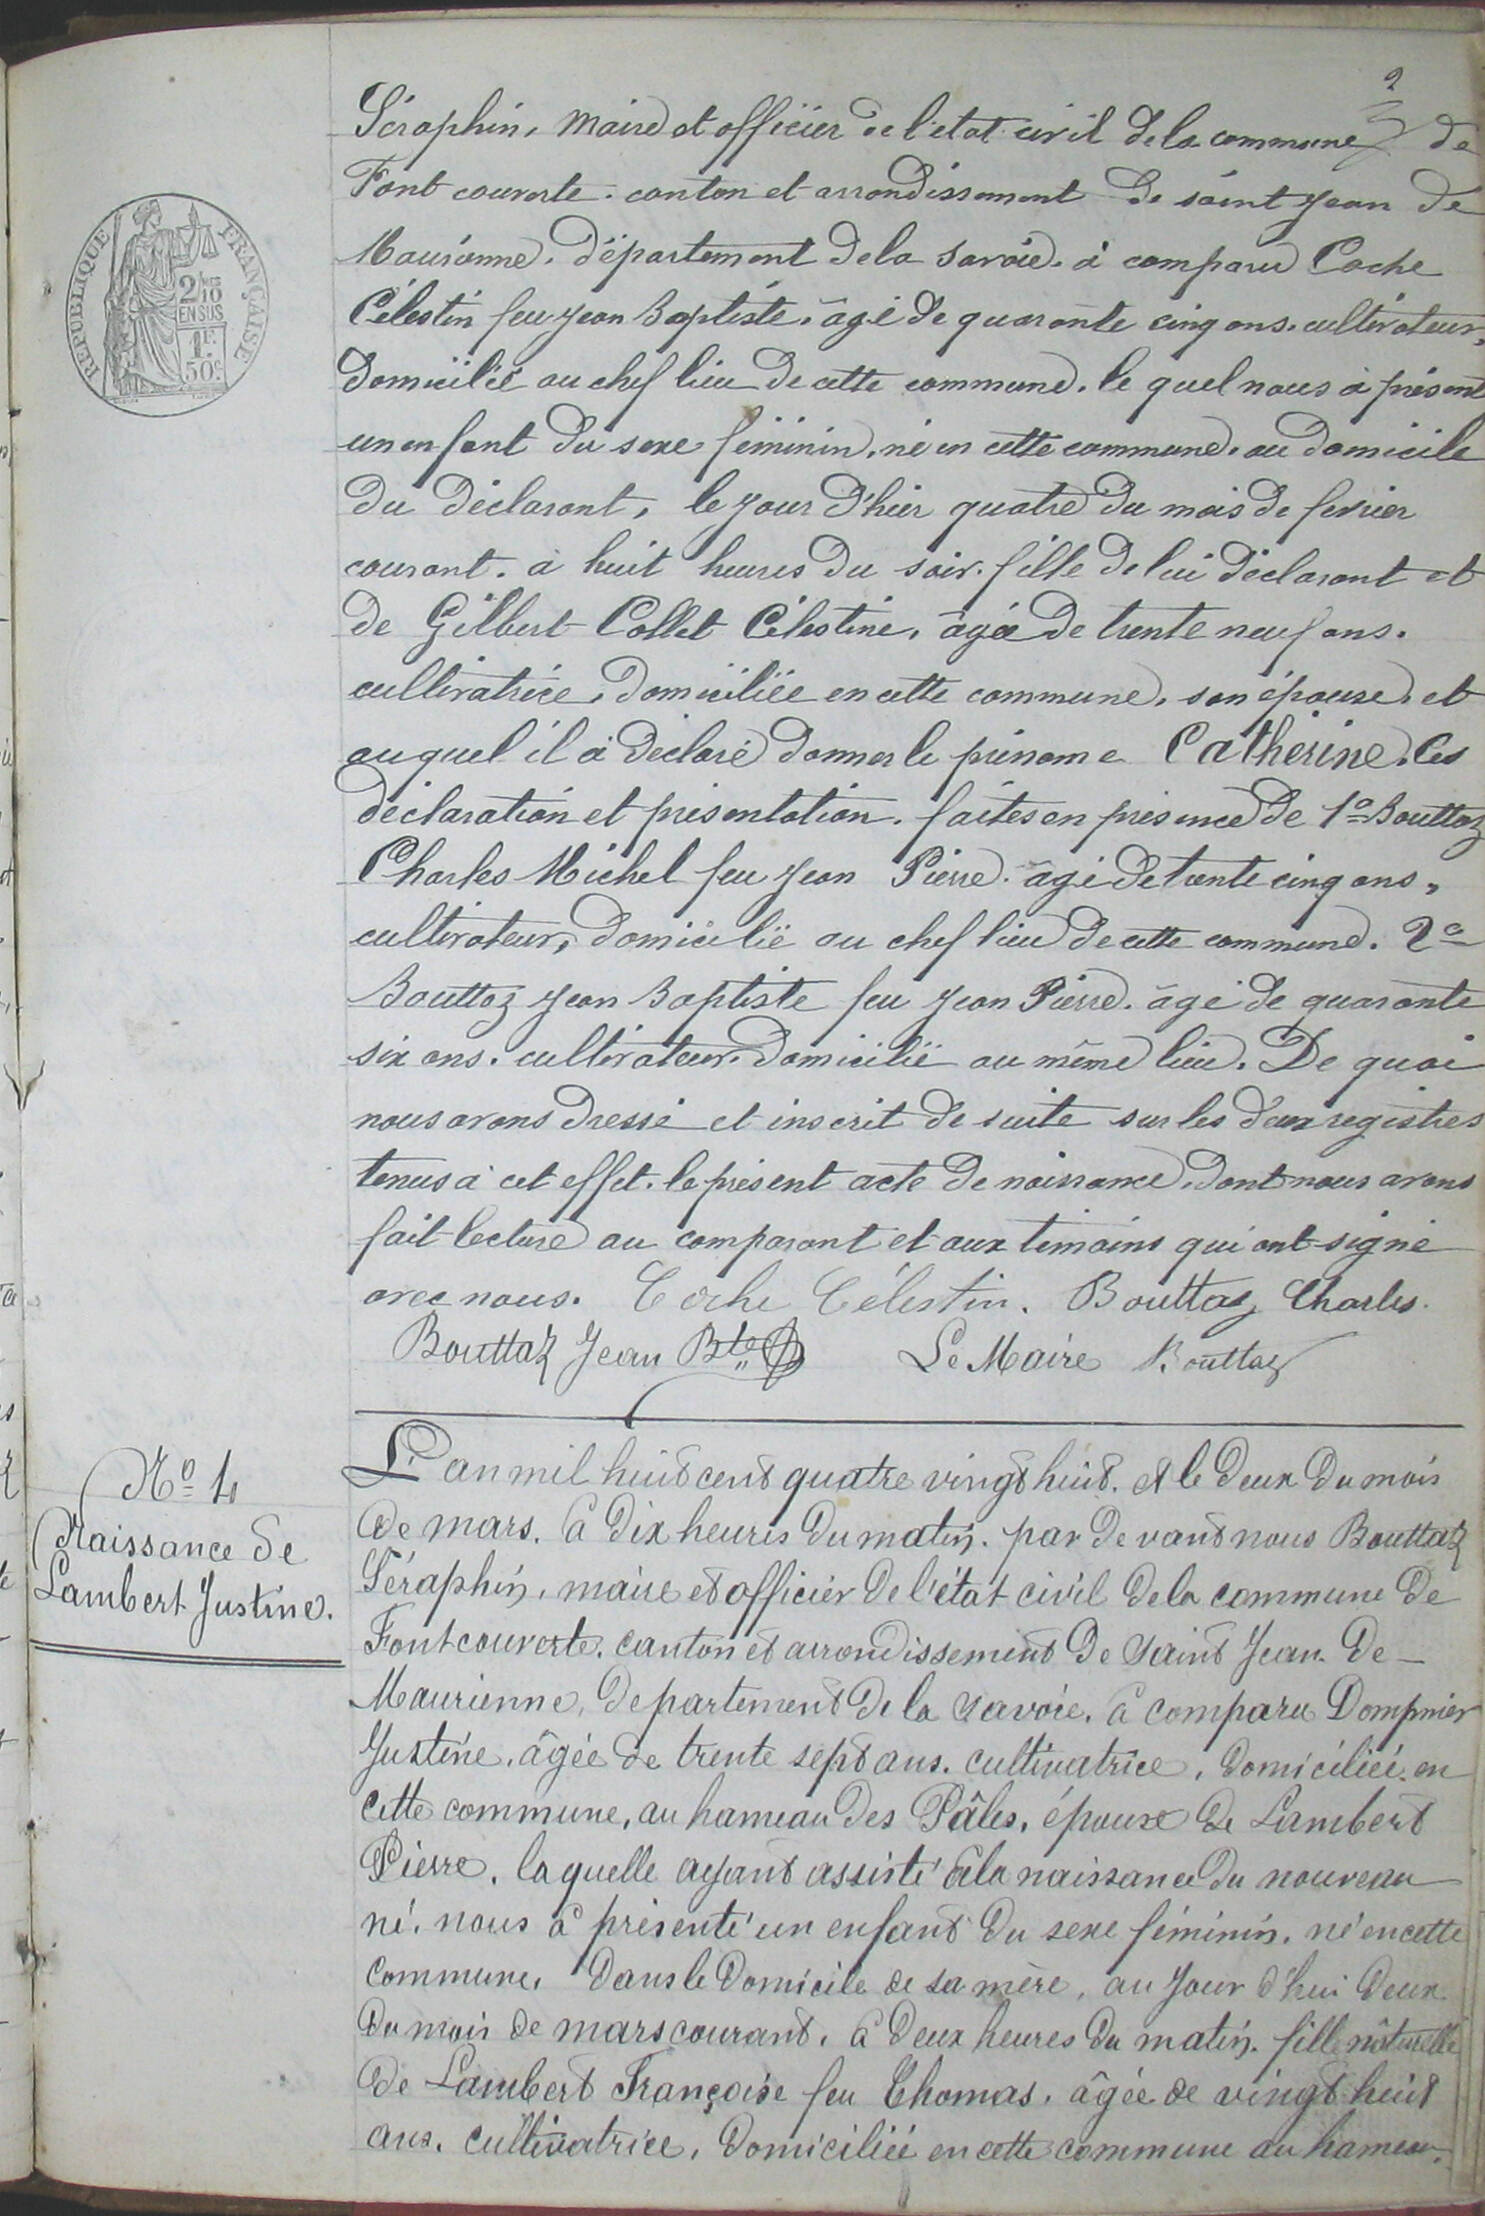 2
Séraphin, Maire et officier de l'état civil de la commune de
Font couverte. canton et arrondissement de saint Jean de
Maurienne. département de la Savoie. à comparu Coche
Célestin feu Jean Baptiste. âgé de quarante cinq ans. cultivateur,
domicilié au chef lieu de cette commune. le quel nous à présenté
un enfant du sexe féminin, né en cette commune. au domicile
du déclarant, le jour d'hier quatre du mois de fevrier
courant. à huit heures du soir. fille de lui déclarant et
de Gilbert Collet Célestine, âgée de trente neuf ans.
cultivatrice, domiciliée en cette commune, son épouse, et
au quel il à déclaré donner le prénom e Catherine. Ces
déclaration et présentation. faites en présence de 1o Bouttaz
Charles Michel feu Jean Pierre. âgé de trente cinq ans,
cultivateur, domicilié au chef lieu de cette commune. 2o
Bouttaz Jean Baptiste feu Jean Pierre. âgé de quarante
six ans. cultivateur. domicilié au même lieu. De quoi
nous avons dressé et inscrit de suite sur les deux registres
tenus à cet effet. le présent acte de naissance, dont nous avons
fait lecture au comparant et aux témoins qui ont signé
avec nous. Coche Célestin. Bouttaz Charles.
Bouttaz Jean Bte Le Maire Bouttaz
REPUBLIQUE FRANÇAISE
2/10
EN SUS
1F.
50c.
No 4
Naissance de
Lambert Justine.
L'an mil huit cent quatre vingt huit. et le deux du mois
de mars. à dix heures du matin. par devant nous Bouttaz
Séraphin, maire et officier de l'état civil de la commune de
Fontcouverte. canton et arrondissement de Saint Jean de
Maurienne, département de la Savoie. à comparu Dompnier
Justine. âgée de trente sept ans. cultivatrice, domiciliée en
cette commune, au hameau des Pâles, épouse de Lambert
Pierre. la quelle ayant assisté à la naissance du nouveau
né. nous à présenté un enfant du sexe féminin. né en cette
commune. dans le domicile de sa mère, au jour d'hui deux
du mois de mars courant, à deux heures du matin. fille naturelle
de Lambert Françoise feu Thomas, âgée de vingt huit
ans. cultivatrice, domiciliée en cette commune au hameau